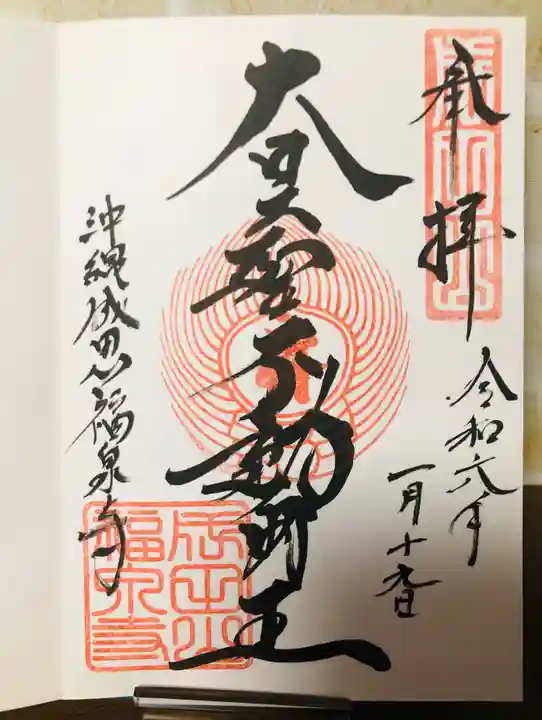 奉拝
令和六年
一月十九日
大日大聖不動明王
沖縄成田山福泉寺
成田山
福泉寺